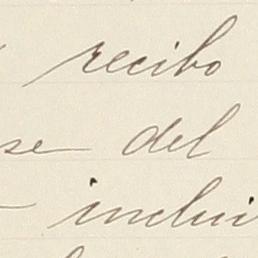 recibo
se del
inclui